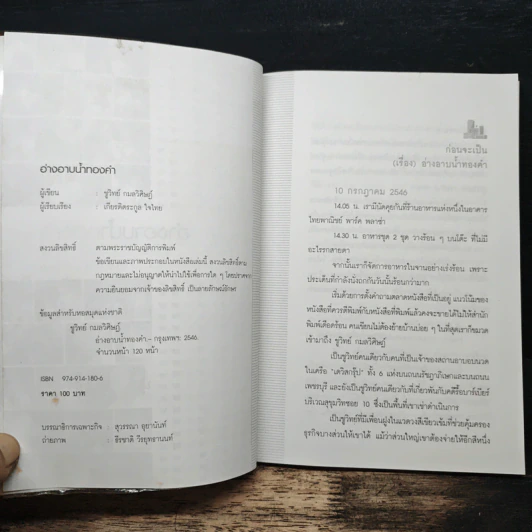 อ่างอาบน้ำทองคำ
ผู้เขียน : ชูวิทย์ กมลวิศิษฎ์
ผู้เรียบเรียง : เกียรติตระกูล ใจไทย
สงวนลิขสิทธิ์ ตามพระราชบัญญัติการพิมพ์
ข้อเขียนและภาพประกอบในหนังสือเล่มนี้ สงวนลิขสิทธิ์ตาม
กฎหมายและไม่อนุญาตให้นำไปใช้เพื่อการใด ๆ โดยปราศจาก
ความยินยอมจากเจ้าของลิขสิทธิ์ เป็นลายลักษณ์อักษร
ข้อมูลสำหรับหอสมุดแห่งชาติ
ชูวิทย์ กมลวิศิษฎ์
อ่างอาบน้ำทองคำ - กรุงเทพฯ: 2546
จำนวนหน้า 120 หน้า
ISBN 974-914-180-6
ราคา 100 บาท
บรรณาธิการเฉพาะกิจ : สุวรรณา อุยานันท์
ถ่ายภาพ : ธีรชาติ วีรยุทธานนท์
ก่อนจะเป็น
(เรื่อง) อ่างอาบน้ำทองคำ
10 กรกฎาคม 2546
14.05 น. เรามีนัดคุยกันที่ร้านอาหารแห่งหนึ่งในอาคาร
ไทยพาณิชย์ พาร์ค พลาซ่า
14.30 น. อาหารชุด 2 ชุด วางร้อน ๆ บนโต๊ะ ที่ไม่มี
อะไรรกสายตา
จากนั้นเราก็จัดการอาหารในจานอย่างเร่งร้อน เพราะ
ประเด็นที่กำลังนั่งถกกันวันนั้นร้อนกว่ามาก
เริ่มด้วยการตั้งคำถามตลาดหนังสือที่เป็นอยู่ แนวโน้มของ
หนังสือที่ควรตีพิมพ์กับหนังสือที่พิมพ์แล้วคงจะขายได้ไม่ให้สำนัก
พิมพ์เดือดร้อน คนเขียนไม่ต้องย้ายบ้านบ่อย ๆ ในที่สุดเราก็ขมวด
เข้ามาถึง ชูวิทย์ กมลวิศิษฎ์
เป็นชูวิทย์คนเดียวกับคนที่เป็นเจ้าของสถานอาบอบนวด
ในเครือ "เดวิสกรุ๊ป" ทั้ง 6 แห่งบนถนนรัชดาภิเษกและบนถนน
เพชรบุรี และยังเป็นชูวิทย์คนเดียวกับที่เกี่ยวพันกับคดีรื้อบาร์เบียร์
บริเวณสุขุมวิทซอย 10 ซึ่งเป็นพื้นที่เขาเช่าดำเนินการ
เป็นชูวิทย์ที่มีเพื่อนฝูงในแวดวงสีเขียวเข้มที่ช่วยคุ้มครอง
ธุรกิจบางส่วนให้เขาได้ แม้ว่าส่วนใหญ่เขาต้องจ่ายให้อีกสีหนึ่ง